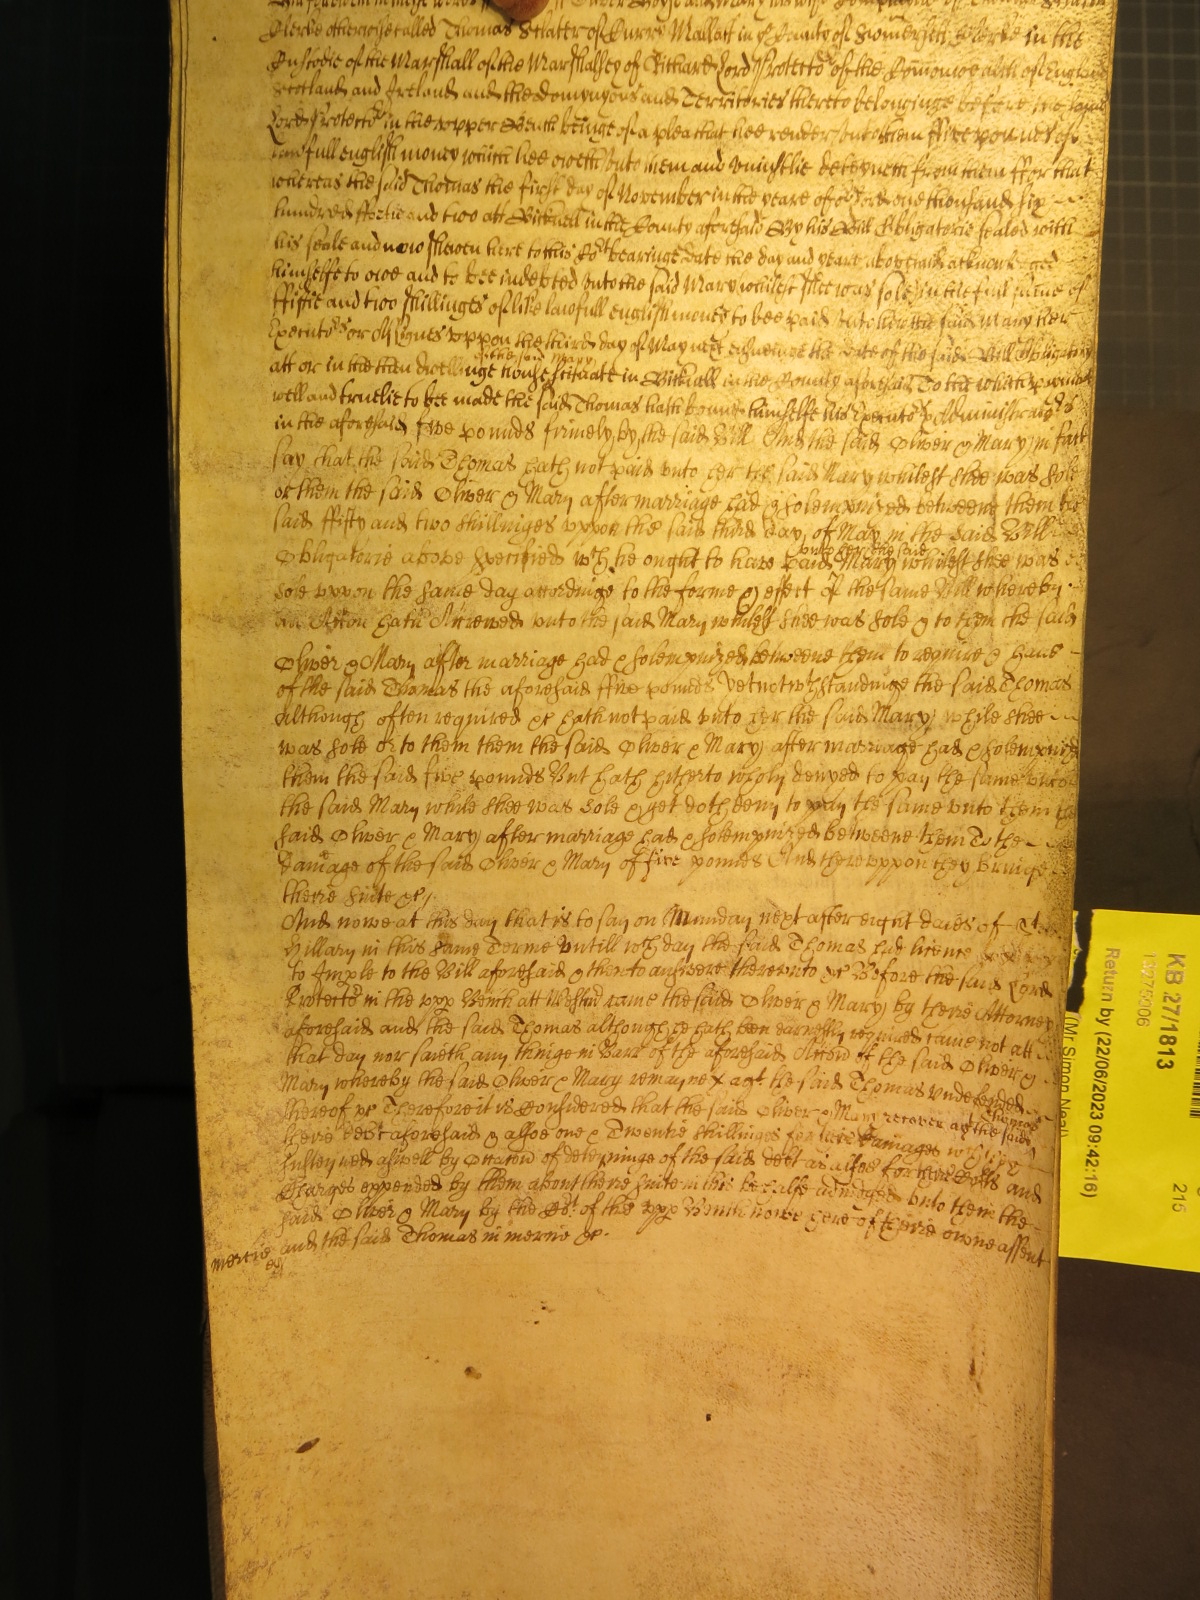 Clerke otherwise called Thomas Sclater of Curry Mallett in ye County of Somersett Clerke in the
Custodie of the Marshall of the Marshalsey of Richard Lord Protector of the Comonwealth of England
Scotland and Ireland and the domynyons and Territories thereto belonginge before the said
Lord Protector in the upper Bench beinge of a plea that hee render unto them ffive poundes of
lawfull english money which hee oweth unto them and uniustlie deteyneth from them ffor that
whereas the said Thomas the first day of November in the yeare of our Lord one thousand six
hundred ffortie and two att Bicknell in the County aforesaid By his Bill Obligatorie sealed with
his seale and now shewen here to this Cort bearinge date the day and yeare abovesaid acknowledged
himselfe to owe and to bee indebted unto the said Mary whilest shee was sole in the full sume of
ffiftie and two shillinges of like lawfull english money to bee paid unto her the said Mary her
Executors or Assignes uppon the third day of May next ensueinge the date of the said Bill Obligatory
att or in the then dwellinge house of the said Mary scituate in Bicknell in the County aforesaid To the which payment
well and truelie to bee made the said Thomas hath bound himselfe his Executors & Administrators
in the aforesaid five pounds firmely by the said Bill And the said Oliver & Mary in fact
say that the said Thomas hath not paid unto her the said Mary whilest shee was sole
or them the said Oliver & Mary after marriage had & solempnized betweene them the
said ffifty and two shillinges uppon the said third day of May in the said Bill
Obligatorie above specified wch he ought to have paid unto her the said Mary whilest shee was
sole uppon the same day accordinge to the forme & effect of the same Bill whereby
an Accon hath Accrewed unto the said Mary whilest shee was sole & to them the said
Oliver & Mary after marriage had & solempnized betweene them to require & have
of the said Thomas the aforesaid ffive pounds Yet notwthstandinge the said Thomas
Although often required &c hath not paid unto her the said Mary while shee
was sole or to them them the said Oliver & Mary after marriage had & solempnized
them the said five pounds But hath hitherto wholy denyed to pay the same unto
the said Mary while shee was sole & yet doth deny to pay the same unto them the
said Oliver & Mary after marriage had & solempnized betweene them To the
damage of the said Oliver & Mary of five pounds And thereuppon they bringe
there suite &c
And nowe at this day that is to say on Munday next after eight daies of St
Hillary in this same Terme untill wch day the said Thomas had licence
to Imple to the Bill aforesaid & then to answere thereunto &c Before the said Lord
Protector in the upp Bench att Westmr came the said Oliver & Mary by there Attorney
aforesaid and the said Thomas although he hath been earnestly required came not att
that day nor saieth any thinge in Barr of the aforesaid Accon of the said Oliver &
Mary whereby the said Oliver & Mary remayne agt the said Thomas undefended
thereof &c Therefore it is Considered that the said Oliver & Mary recover agt the said Thomas
there debt aforesaid & alsoe one & Twentie shillinges for there damages wch they
susteyned aswell by Occacon of deteyninge of the said debt as alsoe for there Costs and
Charges expended by them about there suite in this behalfe adiudged unto them the
said Oliver & Mary by the Cort of the upp Bench nowe here of there owne assent
and the said Thomas in mercie &c.
mercie